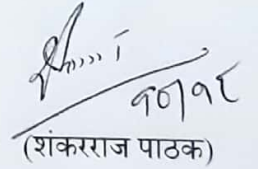 १०/१८
(शंकरराज पाठक)